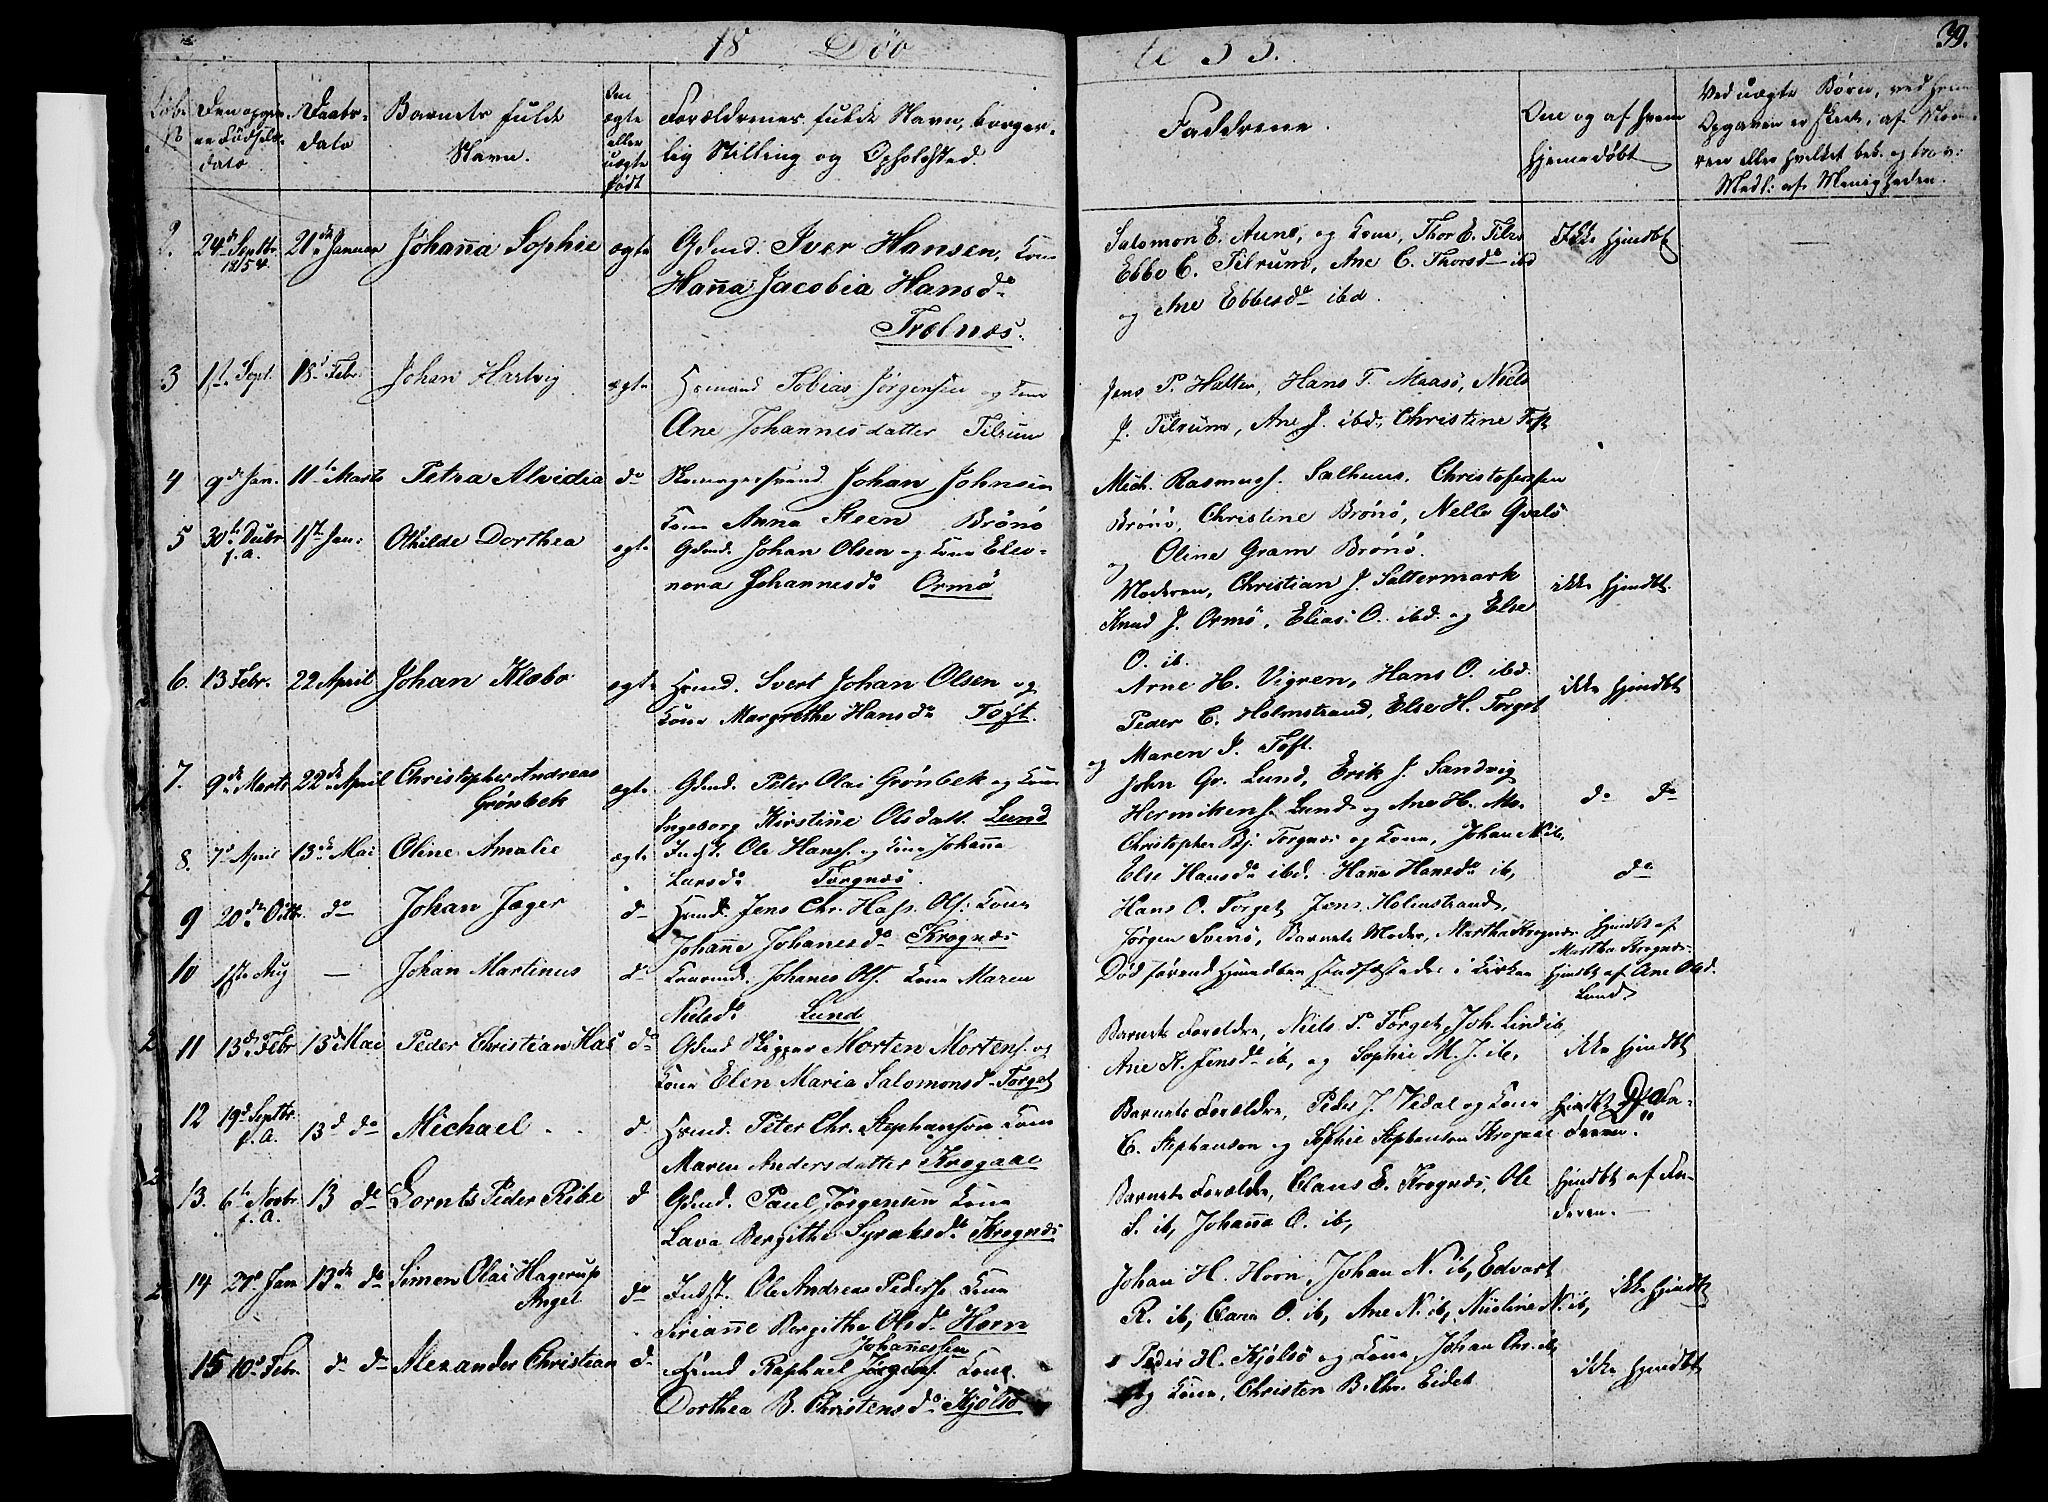 18 Døb
te 55.
39.
Løbe
No
Den opgiv-
ne Fødsels-
dato
Daabs-
dato
Barnets fulde
Navn.
Om
ægte
eller
uægte
født
Forældrenes fulde Navn, borger-
lig Stilling og Opholdsted.
Faddrene.
Om og af hvem
hjemedøbt
Ved uægte Børn, ved hvem
Opgaven er skeet, af Mode-
ren eller hvilket bek. og trov:
Medl: af Menigheden.
2. 24de Septbr. 1854 21de Januar Johanna Sophie ægte Gdmd. Iver Hansen, Kone
Hanna Jacobia Hansdr
Trælnæs.
Salomon E. Aune, og Kone, Thor E. Tilr.
Ebbe C. Tilrum, Ane C. Thorsdr ibd
og Ane Ebbesdr ibd.
Ikke hjmdbt
3 1st Sept. 18d Febr. Johan Hartvig ægte Hsmand Tobias Jørgensen og Kone
Ane Johannesdatter Tilrum
Jens P. Halten, Hans T. Maasø, Niels
J. Tilrum, Ane J. ibd., Christine Toft
4 9de Jan. 11te Marts Petra Alvidia do Johan Johnsen
Kone Anna Steen Brønø
Mich. Rasmuss. Salhuus, Christofersen
Brønø, Christine Brønø, Nella Qvalø
og Oline Gram Brønø.
5 30te Decbr f. A. 1ste Jan: Othilde Dorthea egte Gdmd. Johan Olsen og Kone Eleo-
nora Johannesdr Ormø
Moderen, Christian J. Sattermark
Knud J. Ormø, Elias O. ibd. og Else
O. ib.
ikke hjmdbt
6. 13 Febr. 22 April Johan Klæbo egte Hsmd. Svert Johan Olsen og
Kone Margrethe Hansdr Toft.
Arne H. Vigren, Hans O. ibd.
Peder C. Holmstrand, Else H. Torget
og Maren J. Toft.
ikke hjmdbt
7. 9de Marts 22de April Christopher Andreas
Grønbek ægte Gdmd. Peter Olai Grønbek og Kone
Ingeborg Kirstine Olsdatt. Lund
John Gr. Lund, Erik J. Sandvig
Lund og Ane H.
do do
8. 7d April 13de Mai Oline Amalie ægte Indst. Ole Hanss. og Kone Johanna
Larsdr Torgnæs.
Christopher Bj. Torgnæs og Kone, Johan N. ib,
Else Hansdr ibd. Hanna Hansdr ib,
do
9 20de Octbr. do Johan Jæger do Hsmd. Jens Chr. Hass Ols. Kone
Johanne Johanesdr Krognæs
Hans O. Torget Jens Holmstrand,
Jørgen Svenø, Barnets Moder, Martha Krognæs
hjmdbt af
Martha Krognæs.
10 1ste Aug — Johan Martinus do Johanes Ols. Kone Maren
Nielsdr Lund
Død førend hjmdben stadfæstedes i Kirken
hjmdbt af Ane Olsd.
Lund
11 13de Febr 13d Mai Peder Christian Has do Gdmd Skipper Morten Mortens. og
Kone Elen Maria Salomonsd. Torget
Barnets Forældre, Niels P. Torget, Joh. Lind ib,
Ane K. Jensdr ib, og Sophie M. J. ib,
ikke hjmdbt
12 19d Septbr. f. A. 13d do Michael do Hsmd. Peter Chr. Stephanson Kone
Maren Andersdatter Krogaae
Barnets Forældre, Peder J. Vedal og Kone
C. Stephanson og Sophie Stephanson Krogaae
hjmdbt af Fa-
deren.
13. 6te Novbr f. A. 13 do Lornts Peder Ribe do Gdmd. Paul Jørgensen Kone
Lava Bergithe Syraksdr Krognæs
Barnets Forældre, Claus E. Krognæs, Ole
S. ib, Johanna O. ib,
hjmdbt af Fa-
deren.
14 27d Jan 13de do Simen Olai Hagerup
Angel do Indst. Ole Andreas Peders. Kone
Serianne Bergitha Olsdr Horn
Johan H. Horn, Johan N. ib, Edvart
R. ib, Clara O. ib, Ane N. ib, Nicoline N. ib,
ikke hjmdbt
15 10d Febr. do do Alexander Christian do Hsmd Raphael Jørgens. Johannessen Kone
Dorthea B. Christensdr Kjølsø
Peder H. Kjølsø og Kone, Johan Chr. ib,
og Kone, Christen B. Chr. Eidet
ikke hjmdbt